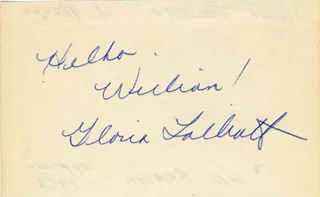 Hello.
William!
Gloria Talbott